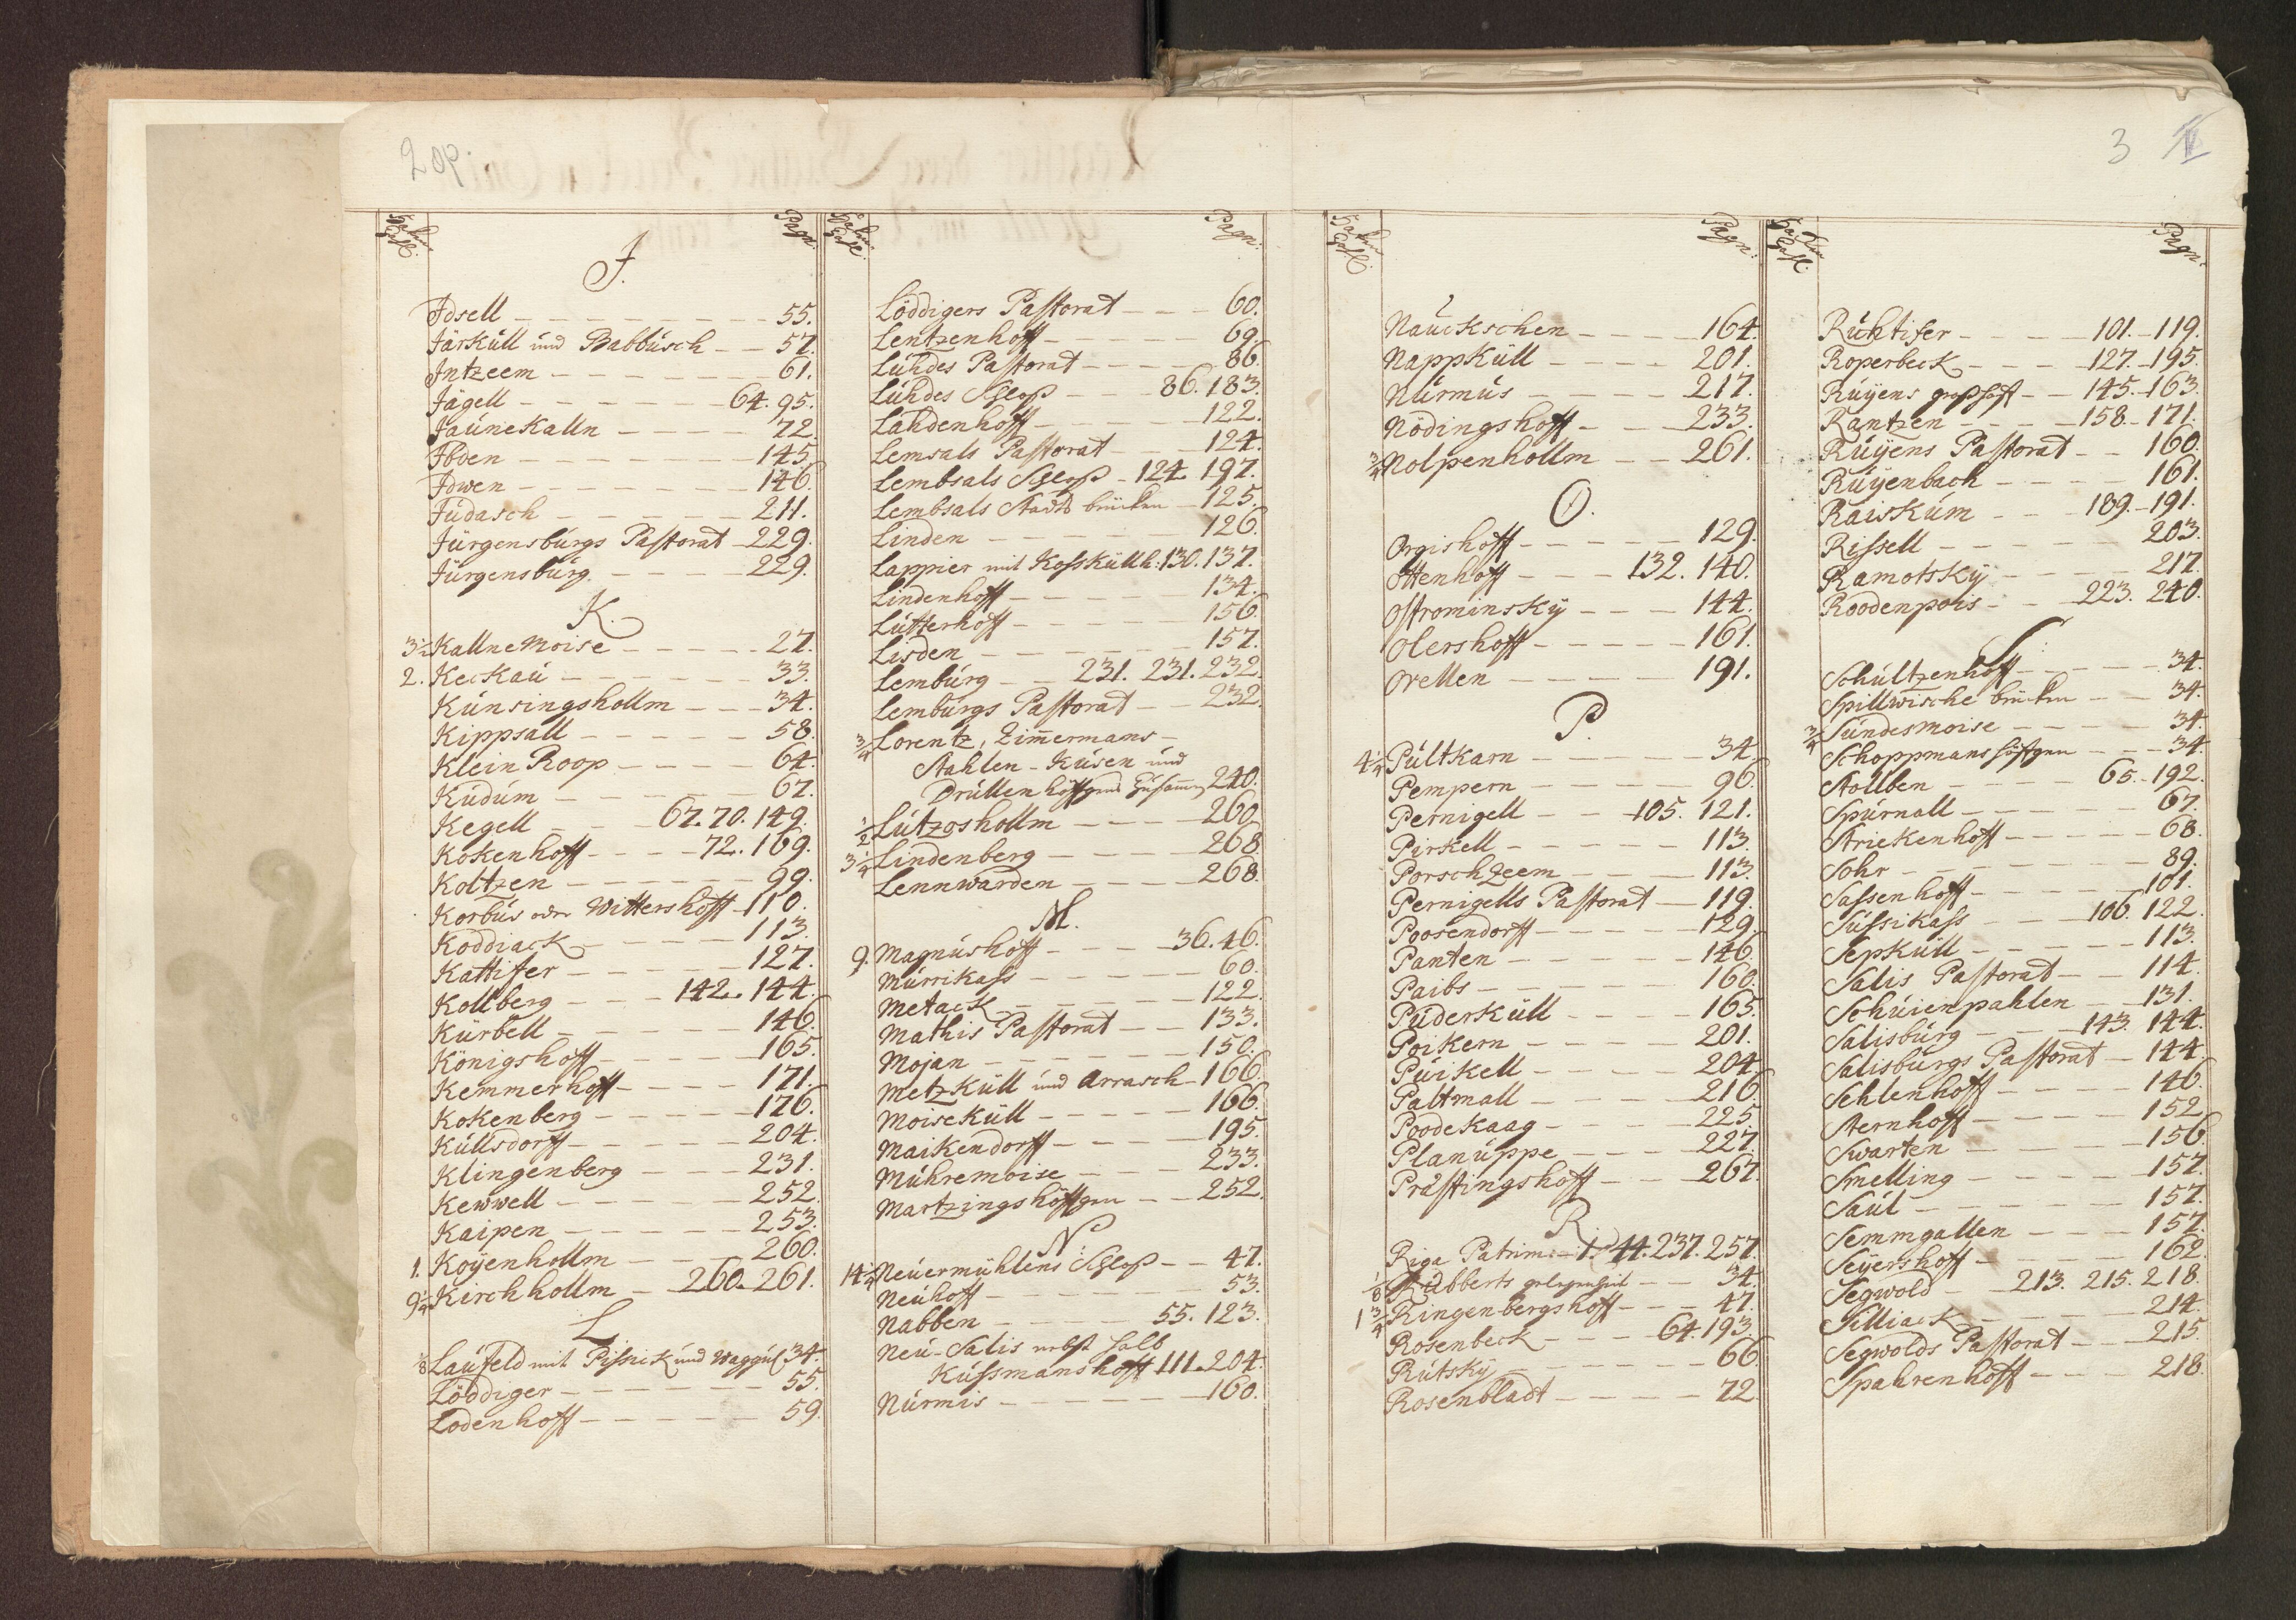 2 op.
Haken Zahl.
Pagn:
J.
Idsell — 55.
Järküll und Babbusch — 57.
Intzeem — 61.
Jägell — 64. 95.
Jaunekalln — 72.
Ibden — 145.
Idwen — 146.
Judasch — 211.
Jürgensburgs Pastorat — 229.
Jürgensburg. — 229.
K.
3½ Kallnemoise — 27.
2. Keckau — 33.
Kunsingshollm — 34.
Kippsall — 58.
Klein Roop — 64.
Kudum — 67.
Kegell — 67. 70. 149.
Kokenhoff — 72. 169.
Koltzen — 99.
Korbus oder Wittershoff — 110.
Koddiack — 113.
Kattifer — 127.
Kollberg — 142. 144.
Kürbell — 146.
Königshoff — 165.
Kemmerhoff — 171.
Kokenberg — 176.
Küllsdorff — 204.
Klingenberg — 231.
Kewwell — 252.
Kaipen — 253.
1. Koyenhollm — 260.
9¼ Kirchhollm — 260. 261.
L.
⅛ Laufeld mit Pissick und Waggus 34.
Löddiger — 55.
Lodenhoff — 59.
Haken Zahl.
Pagn:
Löddigers Pastorat — 60.
Lentzenhoff — 69.
Luhdes Pastorat — 86.
Luhdes Schloß — 86. 183.
Lahdenhoff — 122.
Lemsals Pastorat — 124.
Lembsals Schloß — 124. 197.
Lembsals Stadts brücken — 125.
Linden — 126.
Lappier mit Kosküllh: 130. 137.
Lindenhoff — 134.
Lutterhoff — 156.
Lisden — 157.
Lemburg — 231. 231. 232.
Lemburgs Pastorat — 232.
¾ Lorentz, Zimermans —
Stahlen — Kusen und
Drullen höffgens Zusamen 240.
½ Lutzoshollm — 260.
3¼ Lindenberg — 268.
Lennwarden — 268.
M.
9. Magnushoff — 36. 46.
Murrikass — 60.
Metack — 122.
Mathis Pastorat — 133.
Mojan — 150.
Metzküll und Arrasch — 166.
Moiseküll — 166.
Maikendorff — 195.
Muhremoise — 233.
Martzingshöffgen — 252.
N:
14¼ Neuermühlens Schloß — 47.
Neuhoff — 53.
Nabben — 55. 123.
Neu-Salis nebst halb
Kussmanshoff 111. 204.
Nurmis — 160.
3
Haken Zahl.
Pagn:
Nauckschen — 164.
Nappküll — 201.
Nurmus — 217.
Nödingshoff — 233.
¾ Nolpenhollm — 261.
O.
Orgishoff — 129.
Ottenhoff — 132. 140.
Ostrominsky — 144.
Olershoff — 161.
Orellen — 191.
P.
4¼ Pultkarn — 34.
Pempern — 96.
Pernigell — 105. 121.
Pirkell — 113.
Porschzeem — 113.
Pernigells Pastorat — 119.
Poosendorff — 129.
Panten — 146.
Paibs — 160.
Puderküll — 165.
Poikern — 201.
Puikell — 204.
Paltmall — 216.
Poodekaag — 225.
Planuppe — 227.
Prästingshoff — 267.
R.
Riga Patrim — 1. 44. 237. 257.
⅛ Rabberts gelegenheit — 34.
1¾ Ringenbergshoff — 47.
Rosenbeck — 64. 193.
Rutsky — 66.
Rosenbladt — 72.
Haken Zahl.
Pagn:
Ruhtifer — 101. 119.
Roperbeck — 127. 195.
Ruyens großhoff — 145. 163.
Rantzen — 158. 171.
Ruyens Pastorat — 160.
Ruyenbach — 161.
Raiskum — 189. 191.
Rissell — 203.
Ramotsky — 217.
Roodenpois — 223. 240.
S:
Schultzenhoff — 34.
Spillwische brücken — 34.
¾ Sundesmoise — 34.
Schoppmans höffgen — 34.
Stollben — 65. 192.
Spurnall — 67.
Striekenhoff — 68.
Sohr — 89.
Sassenhoff — 101.
Sussikass — 106. 122.
Sepküll — 113.
Salis Pastorat — 114.
Schuienpahlen — 131.
Salisburg — 143. 144.
Salisburgs Pastorat — 144.
Sehlenhoff — 146.
Sternhoff — 152.
Swarten — 156.
Smelling — 157.
Saul — 157.
Semmgallen — 157.
Seyershoff — 162.
Segwold — 213. 215. 218.
Silliack — 214.
Segwolds Pastorat — 215.
Spahrenhoff — 218.